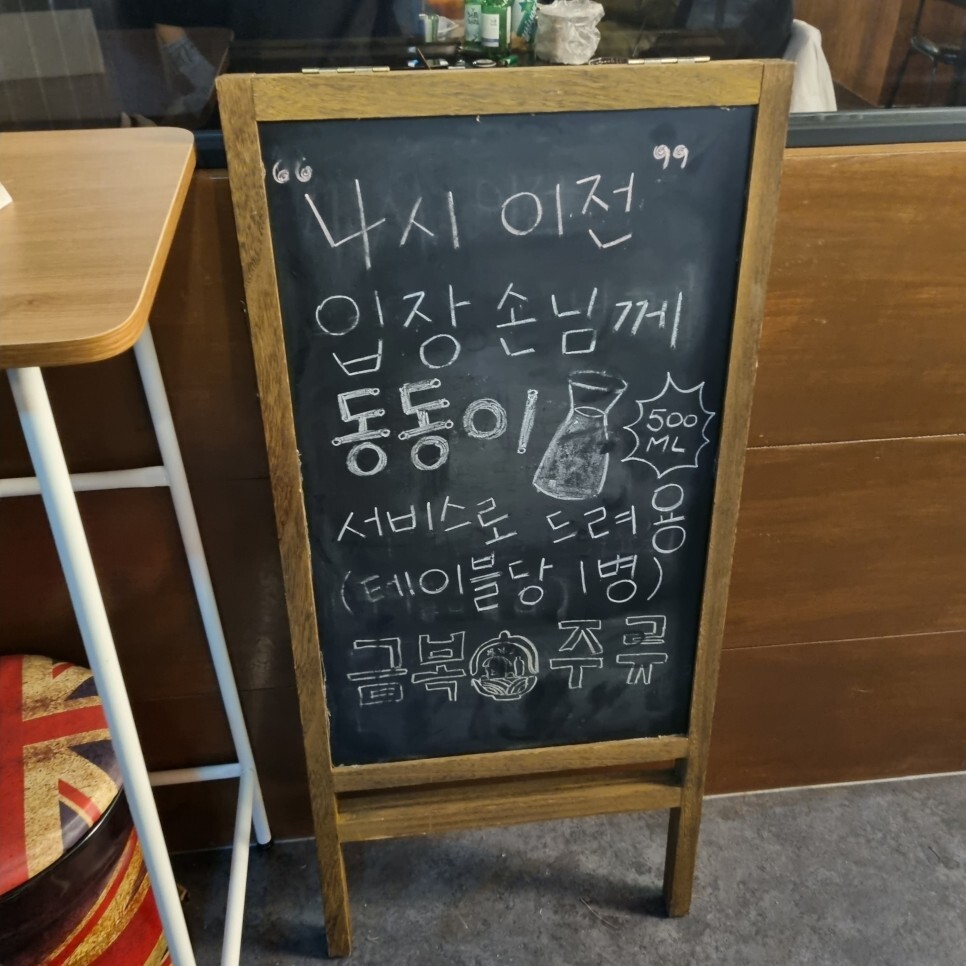 “ 나시 이전 ”
입장 손님께
동동이
500
ML
서비스로 드려용
(테이블당 1병)
금복 주류